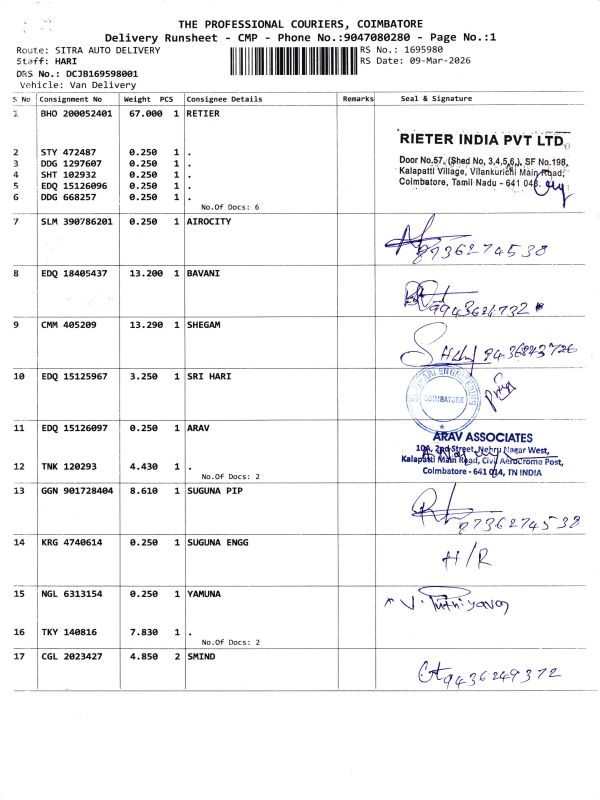 THE PROFESSIONAL COURIERS, COIMBATORE
Delivery Runsheet - CMP - Phone No.:9047080280 - Page No.:1
Route: SITRA AUTO DELIVERY
RS No.: 1695980
Staff: HARI
RS Date: 09-Mar-2026
DRS No.: DCJB169598001
Vehicle: Van Delivery
S No Consignment No Weight PCS Consignee Details Remarks Seal & Signature
1 BHO 200052401 67.000 1 RETIER
RIETER INDIA PVT LTD.,
Door No.57, (Shed No, 3,4,5,6,), SF No.198,
Kalapatti Village, Vilankurichi Main Road,
Coimbatore, Tamil Nadu - 641 048.
2 STY 472487 0.250 1 .
3 DDG 1297607 0.250 1 .
4 SHT 102932 0.250 1 .
5 EDQ 15126096 0.250 1 .
6 DDG 668257 0.250 1 .
No.Of Docs: 6
7 SLM 390786201 0.250 1 AIROCITY
8736274538
8 EDQ 18405437 13.200 1 BAVANI
9943624732
9 CMM 405209 13.290 1 SHEGAM
9436243726
10 EDQ 15125967 3.250 1 SRI HARI
COIMBATORE
Priya
11 EDQ 15126097 0.250 1 ARAV
ARAV ASSOCIATES
10A, 2nd Street, Nehru Nagar West,
Kalapatti Main Road, Civil Aerodrome Post,
Coimbatore - 641 014, TN INDIA
12 TNK 120293 4.430 1 .
No.Of Docs: 2
13 GGN 901728404 8.610 1 SUGUNA PIP
8736274538
14 KRG 4740614 0.250 1 SUGUNA ENGG
H/R
15 NGL 6313154 0.250 1 YAMUNA
16 TKY 140816 7.830 1 .
No.Of Docs: 2
17 CGL 2023427 4.850 2 SMIND
9436249372